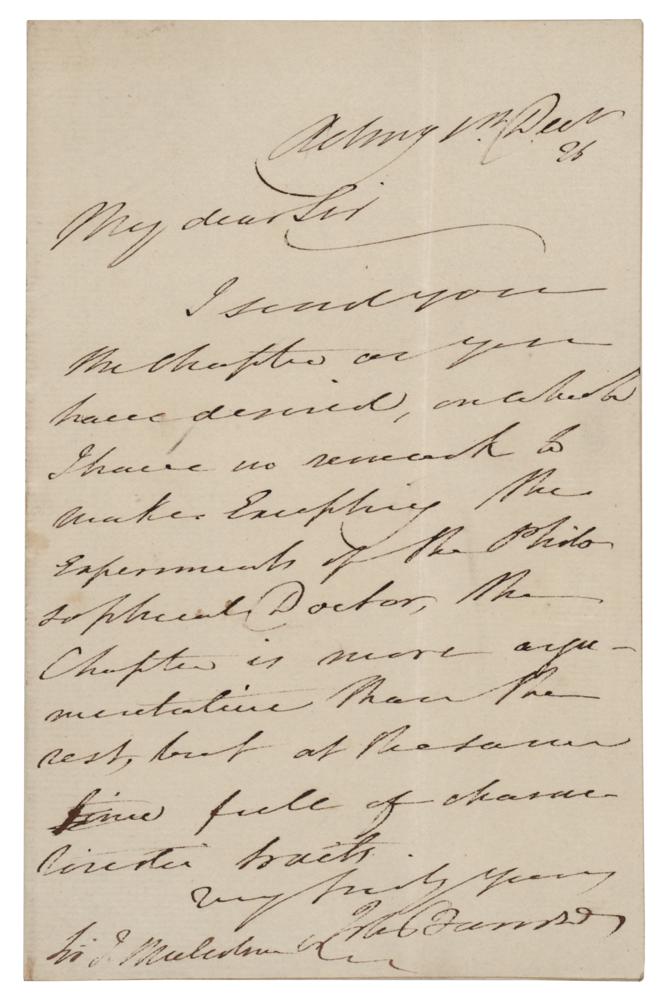 1st Decr
26
My dear Sir
I send you
the Chapter as you
have desired, on which
I have no remark to
make. Excepting the
Experiments of the Philo
sophical Doctor, the
Chapter is more argu-
mentative than the
rest, but at the same
time full of charac
teristic traits.
very truly yours
Sir J. Malcolm